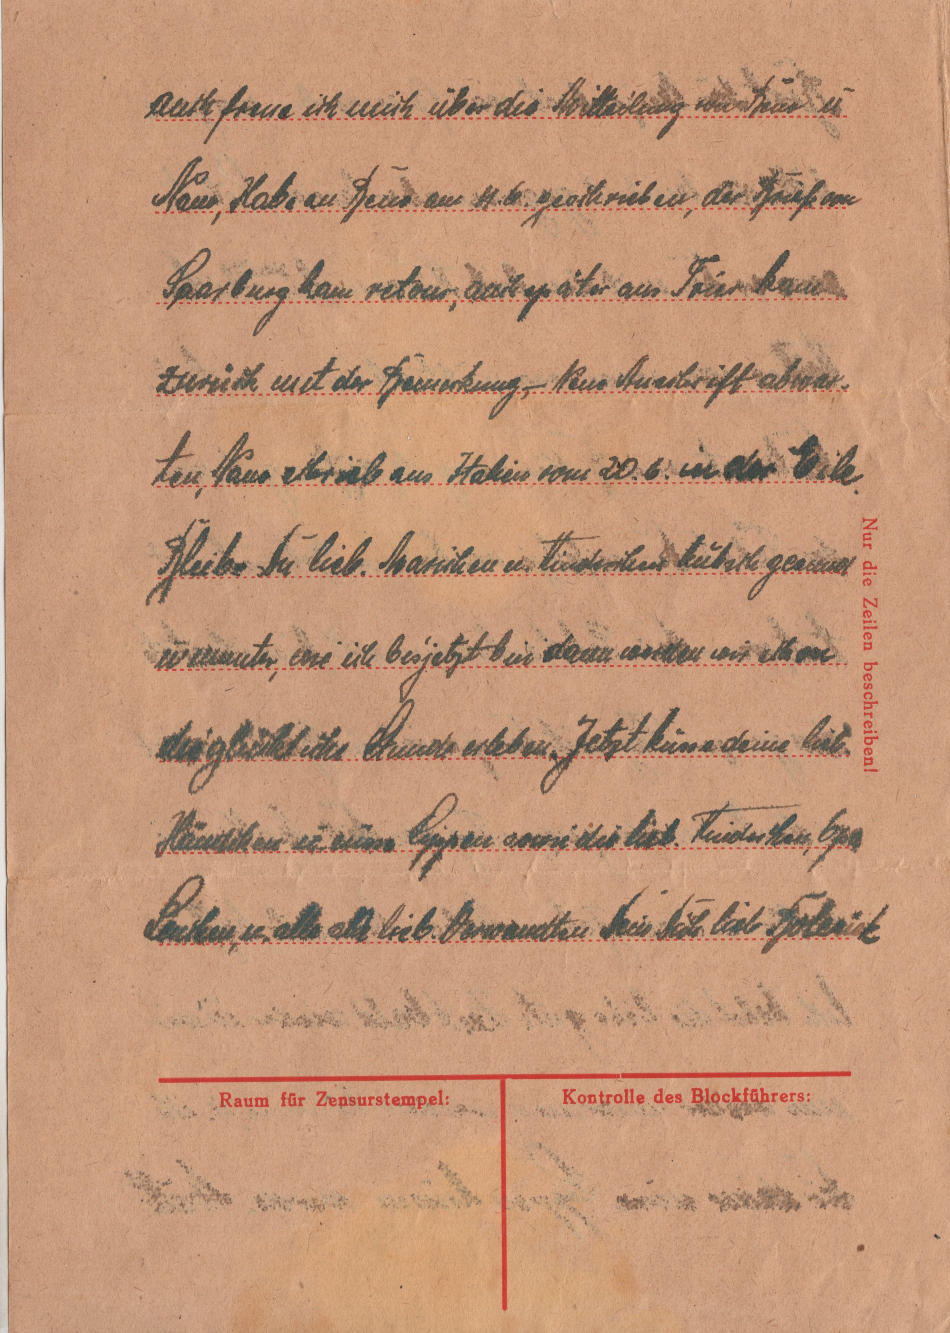 auch freue ich mich über die Mitteilung von René u
Nano, Habe an René am 11.6. geschrieben, der Brief von
Saarburg kam retour, auch später aus Trier kam
zurück mit der Bemerkung, – Neue Anschrift abwar-
ten, Nano schrieb aus Italien vom 20.6. in der Eile.
Bleibe Du lieb. Mariechen u. Kinderchen hübsch gesund
u munter, wie ich bisjetzt bin dann werden wir schon
die glückliche Stunde erleben. Jetzt küsse deine lieb.
Händchen u eure Lippen sowie die lieb. Kinderchen, Opa
u. alle alle lieb. Verwandten Dein Dich lieb
Nur die Zeilen beschreiben!
Raum für Zensurstempel:
Kontrolle des Blockführers: